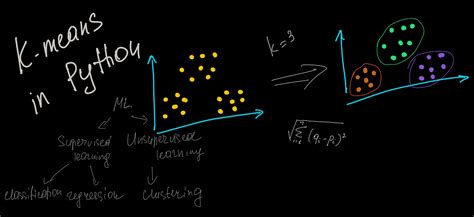 K-means
in Python
k=3
ML
Supervised
learning
Unsupervised
learning
classification regression clustering
√∑ⁿᵢ₌₁(qᵢ-pᵢ)²